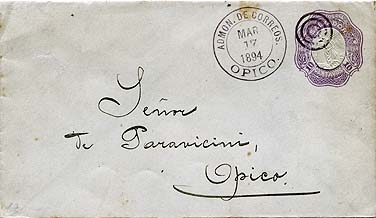 ADMON. DE CORREOS.
MAR
17
1894
OPICO.
10 10
Señor
de Paravicini,
Opico.